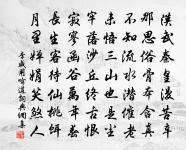 漢武秦皇漫苦辛
那思俗骨本含真
不知流水潛催老
未悟三山也是塵
牢落沙丘終古恨
寂寥函谷萬年春
長生客待仙桃餌
月里嬋娟笑煞人
李咸用喻道詞典網書